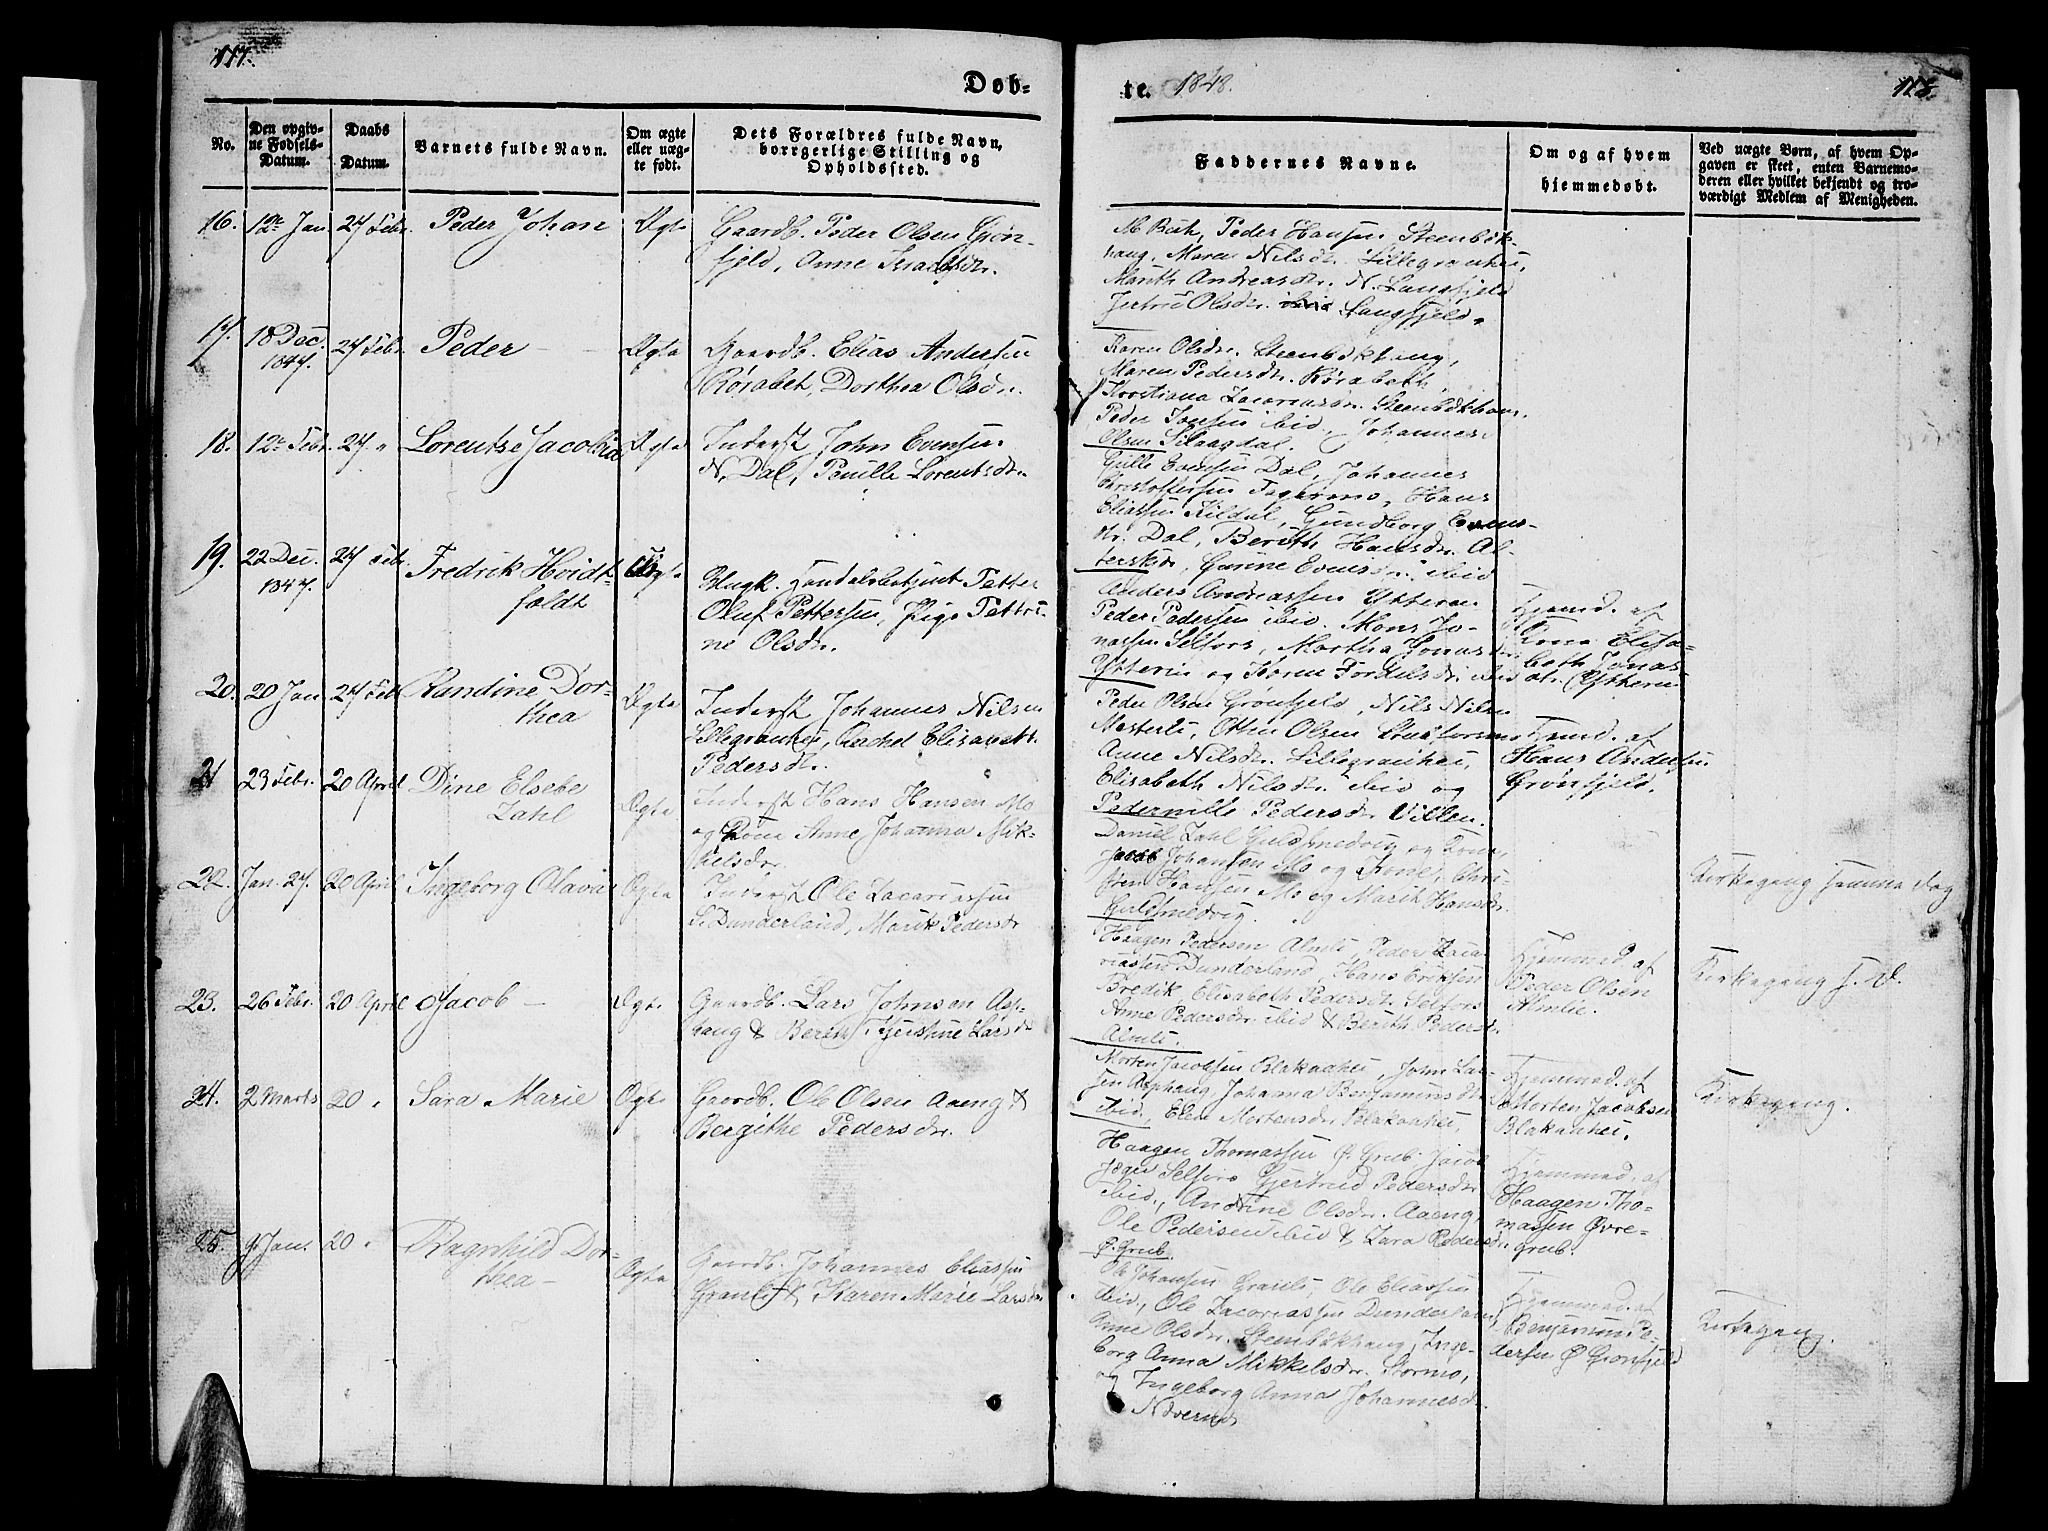 117.
Døb-
te. 1848.
118.
No.
Den opgiv-
ne Fødsels-
Datum.
Daabs
Datum.
Barnets fulde Navn.
Om ægte
eller uæg-
te født.
Dets Forældres fulde Navn,
borrgerlige Stilling og
Opholdssted.
Faddernes Navne.
Om og af hvem
hjemmedøbt.
Ved uægte Børn, af hvem Op-
gaven er skeet, enten Barnemo-
deren eller hvilket bekjendt og tro-
værdigt Medlem af Menigheden.
16. 12te Jan 27 Febr. Peder Johan Ægte
Gaardb. Peder Olsen Grøn-
fjeld, Anne Israelsdr.
Peder Hansen Steenbæk-
haug, Maren Nilsdr. Lillegranhei,
Marith Andreasdr. N. Langfjeld
Olsdr. Langfjeld.
17. 18 Dec. 1847. 27 Febr. Peder Ægte
Gaardb. Elias Andersen
Røvabet, Dorthea Olsdr.
Karen Olsdr. Steenbækhaug,
Maren Pedersdr. Røvabeth,
Zacariasdr. Steenbækhaug.
Peder Jonsen ibid, Johannes
Olsen
18. 12te Febr. 27. " Lorentse Jacobia Ægte
Inderst John Evensen
N. Dal, Pernille Lorentsdr.
Evensen Dal, Johannes
Christoffersen Fagermo, Hans
Eliassen Kildal, Gundborg Evens-
dr. Dal, Berith Hansdr. Al-
Evensdr. ibid
19. 22 Dec. 1847. 27 Febr. Fredrik Hvidt-
feldt
Ungk. Handelsbetjent Petter
Oluf Pettersen, Pige Petri-
ne Olsdr.
Anders Andreassen Ytteren
Peder Pedersen ibid. Mons Jo-
nassen Selfors, Martha Jonasdr.
Ytteren og Karen ibid
Hjemd. af
Elisa-
beth Jonas-
dr. Ytteren
20. 20 Jan 27 Feb Randine Dor-
thea
Ægte
Inderst Johannes Nilsen
Lillegranhei, Rachel Elisabeth
Pedersdr.
Peder Olsen Grønfjeld, Nils Nilsen
Mesterli, Olsen
Anne Nilsdr. Lillegranhei,
Elisabeth Nilsdr. ibid og
Pedernille Pedersdr. Villen.
Hjemd. af
Hans Andersen
Grønfjeld.
21 23 Febr. 20 April Dine Elsebe
Zahl
Ægte
Inderst Hans Hansen Mo
og Kone Anne Johanna Mik-
kelsdr.
Daniel Zahl Guldsmedvig og Kone,
Jacob Johansen Mo og Kone,
Hansen Mo og Marit Hansdr.
Guldsmedvig.
Kirkegang samme dag
22. Jan. 27. 20 April Ingeborg Olava Ægte
Inderst Ole Zacariassen
S. Dunderland, Marit Pedersdr
Haagen Pedersen Almli, Peder Zaca-
riassen Dunderland, Hans Eriksen
Bredik, Elisabeth Pedersdr. Selfors
Anne Pedersdr. ibid & Berith Pedersdr.
Almli.
Hjemmed af
Peder Olsen
Almlie.
Kirkegang s. D.
23. 26 Febr. 20 April Jacob Ægte
Gaardb. Lars Johnsen Asp-
haug & Berith Kjerstine Larsdr
Morten Jacobsen Blakaahei, John Lar-
sen Asphaug, Johanna Benjaminsdr
ibid, Elen Mortensdr. Blakaahei,
Hjemmed. af
Morten Jacobsen
Blakaahei.
Kirkegang.
24. 2 Marts 20 " Sara Marie Ægte
Gaardb. Ole Olsen Aaeng &
Bergithe Pedersdr.
Haagen Thomassen Ø. Grub. Jacob
Selfors Gjertrud Pedersdr
ibid, Andrine Olsdr. Aaeng,
Ole Pedersen ibid & Zara Pedersdr
Ø. Grub.
Hjemmed. af
Haagen Tho-
massen Øvre-
grub.
25. 9 Jan. 20 " Ragnhild Dor-
thea
Ægte
Gaardb. Johannes Eliassen
Granli & Karen Marie Larsdr
Ole Johansen Granli, Ole Eliassen
ibid, Ole Zacariassen Dunderland,
Anne Olsdr. Steenbækhaug, Inge-
borg Anna Mikkelsdr. Stormo,
og Ingeborg Anna Johannesdr.
Hjemmed. af
Benjamin Pe-
dersen Ø Grønfjeld
Kirkegang.